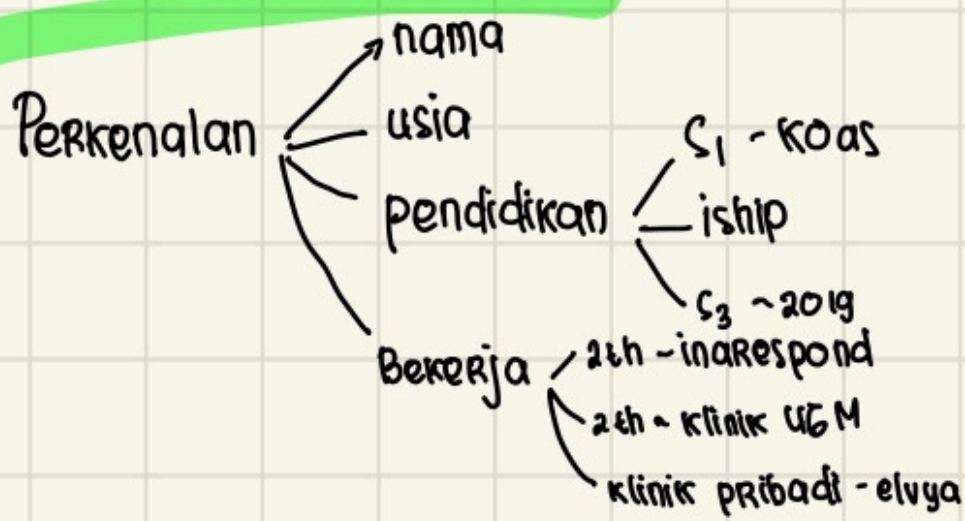 nama
Perkenalan
usia
S1 - koas
pendidikan
iship
S3 ~ 2019
Bekerja
2th - inarespond
2th ~ klinik UGM
klinik pribadi - elvya